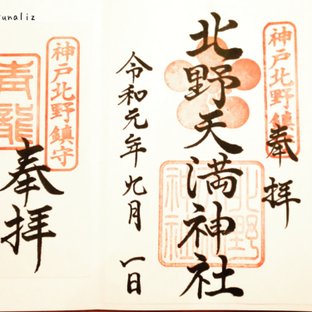 神戸北野鎮
奉拝
北野天満神社
北野
神社
令和元年九月一日
神戸北野鎮守
青龍
奉拝